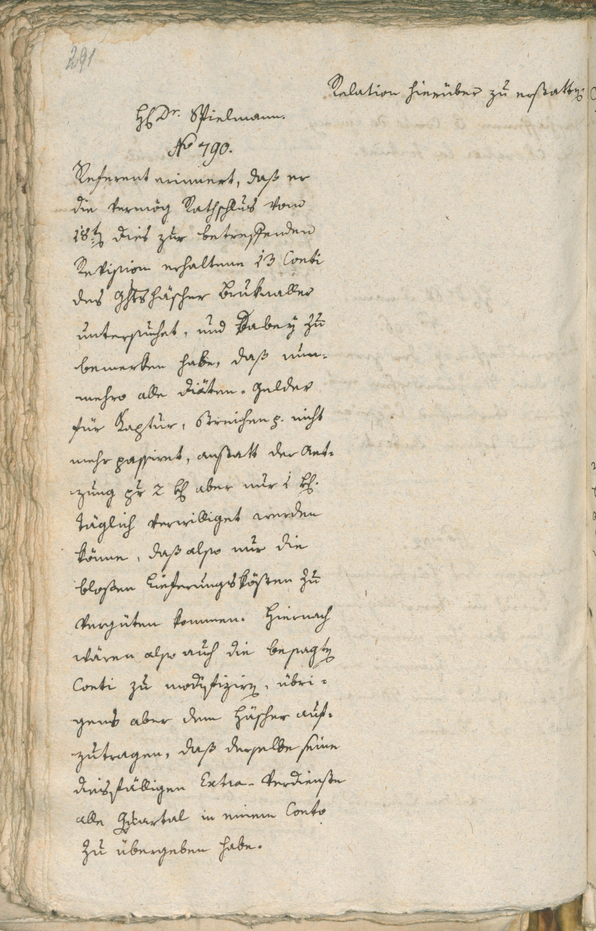 291
Relation hierüber zu erstatten.
H. Dr. Spielmann.
No 790.
Referent erinnert, daß er
die vermög Rathschluß vom
18t dies zur betreffenden
Revision erhaltene 13 Conti
des Ghtshäscher Bruknaller
untersuchet, und dabey zu
bemerken habe, daß nun-
mehro alle Diäten-Gelder
für Kaptur, Streichen p. nicht
mehr passiret, anstatt der Aet-
zung pr 2 kh aber nur 1 kh.
täglich verwilliget werden
könne, daß also nur die
bloßen Lieferungskösten zu
vergüten kommen. Hiernach
wären also auch die besagten
Conti zu modifiziren, übri-
gens aber dem Häscher auf-
zutragen, daß derselbe seine
diesfälligen Extra-Verdienste
alle Quartal in einem Conto
zu übergeben habe.